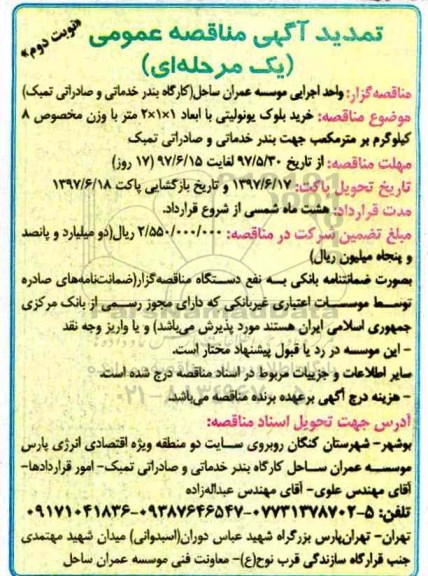 تمدید آگهی مناقصه عمومی
(یک مرحله‌ای)
«نوبت دوم»
مناقصه‌گزار: واحد اجرایی موسسه عمران ساحل(کارگاه بندر خدماتی و صادراتی تمبک)
موضوع مناقصه: خرید بلوک یونولیتی با ابعاد ۱×۱×۲ متر با وزن مخصوص ۸
کیلوگرم بر مترمکعب جهت بندر خدماتی و صادراتی تمبک
مهلت مناقصه: از تاریخ ۹۷/۵/۳۰ لغایت ۹۷/۶/۱۵ (۱۷ روز)
تاریخ تحویل پاکت: ۱۳۹۷/۶/۱۷ و تاریخ بازگشایی پاکت ۱۳۹۷/۶/۱۸
مدت قرارداد: هشت ماه شمسی از شروع قرارداد.
مبلغ تضمین شرکت در مناقصه: ۲/۵۵۰/۰۰۰/۰۰۰ ریال(دو میلیارد و پانصد
و پنجاه میلیون ریال)
بصورت ضمانتنامه بانکی به نفع دستگاه مناقصه‌گزار(ضمانت‌نامه‌های صادره
توسط موسسات اعتباری غیربانکی که دارای مجوز رسمی از بانک مرکزی
جمهوری اسلامی ایران هستند مورد پذیرش می‌باشد) و یا واریز وجه نقد
- این موسسه در رد یا قبول پیشنهاد مختار است.
سایر اطلاعات و جزییات مربوط در اسناد مناقصه درج شده است.
- هزینه درج آگهی برعهده برنده مناقصه می‌باشد.
آدرس جهت تحویل اسناد مناقصه:
بوشهر- شهرستان کنگان روبروی سایت دو منطقه ویژه اقتصادی انرژی پارس
موسسه عمران ساحل کارگاه بندر خدماتی و صادراتی تمبک- امور قراردادها-
آقای مهندس علوی- آقای مهندس عبداله‌زاده
تلفن: ۵-۰۷۷۳۱۳۷۸۷۰۲-۰۹۳۸۷۶۴۶۵۴۷-۰۹۱۷۱۰۴۱۸۳۶
تهران- تهران‌پارس بزرگراه شهید عباس دوران(اسبدوانی) میدان شهید مهتمدی
جنب قرارگاه سازندگی قرب نوح(ع)- معاونت فنی موسسه عمران ساحل